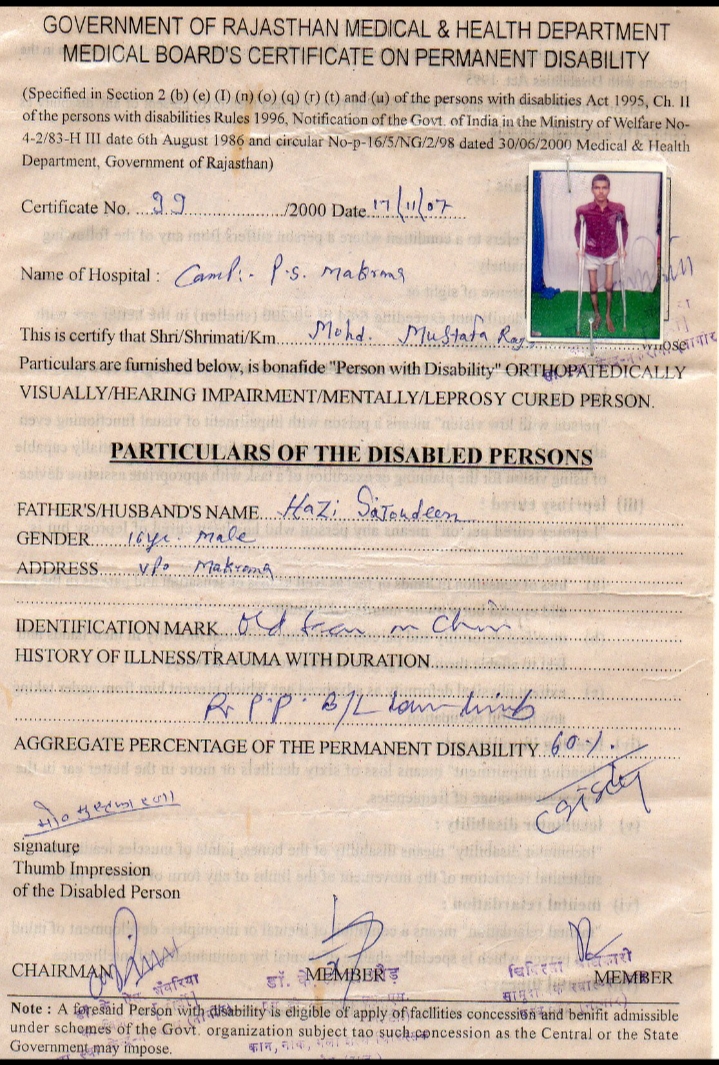 GOVERNMENT OF RAJASTHAN MEDICAL & HEALTH DEPARTMENT
MEDICAL BOARD'S CERTIFICATE ON PERMANENT DISABILITY
(Specified in Section 2 (b) (e) (I) (n) (o) (q) (r) (t) and (u) of the persons with disablities Act 1995, Ch. II
of the persons with disabilities Rules 1996, Notification of the Govt. of India in the Ministry of Welfare No-
4-2/83-H III date 6th August 1986 and circular No-p-16/5/NG/2/98 dated 30/06/2000 Medical & Health
Department, Government of Rajasthan)
Certificate No. 99 /2000 Date 17/11/07
Name of Hospital : Camp:- P.S. Makrana
This is certify that Shri/Shrimati/Km. Mohd. Mustafa whose
Particulars are furnished below, is bonafide "Person with Disability" ORTHOPATEDICALLY
VISUALLY/HEARING IMPAIRMENT/MENTALLY/LEPROSY CURED PERSON.
PARTICULARS OF THE DISABLED PERSONS
FATHER'S/HUSBAND'S NAME Hazi
GENDER 16yr. male
ADDRESS vpo Makrana
IDENTIFICATION MARK Old scar on Chin
HISTORY OF ILLNESS/TRAUMA WITH DURATION
P.P. B/L Lower limb
AGGREGATE PERCENTAGE OF THE PERMANENT DISABILITY 60%.
signature
Thumb Impression
of the Disabled Person
CHAIRMAN MEMBER MEMBER
डॉ. के
Note : A foresaid Person with disability is eligible of apply of facilities concession and benifit admissible
under schemes of the Govt. organization subject tao such concession as the Central or the State
Government may impose.
कान, नाक,